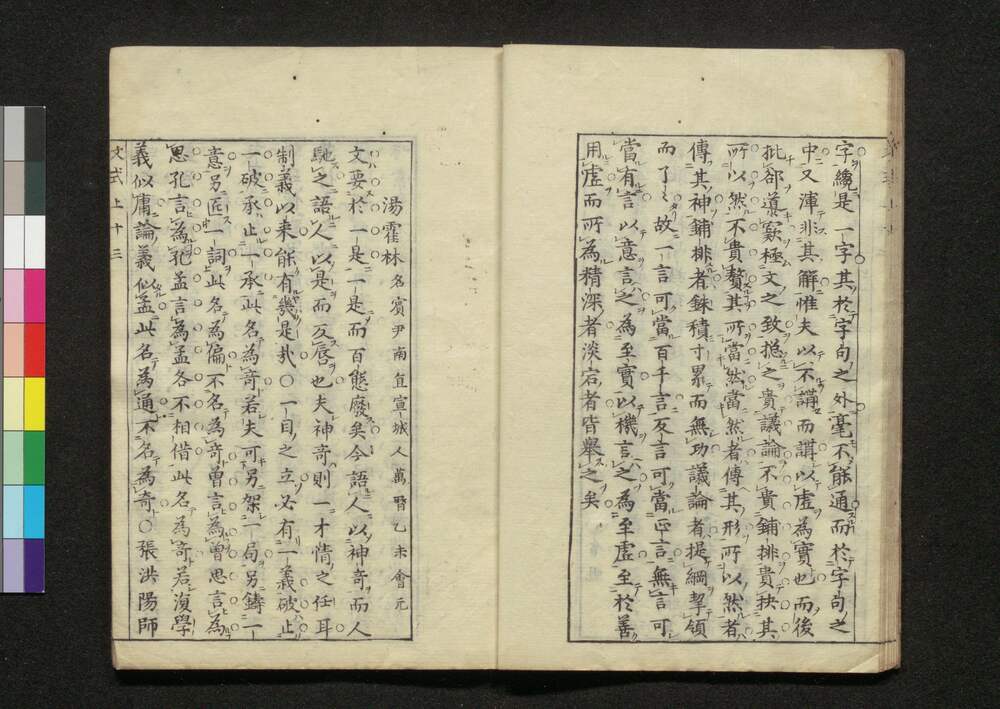 字纔是一字其於字句之外毫不能通而於字句之
中又渾非其解惟夫以不講而講以虛為實也而後
批郤導窾極文之致揔之貴議論不貴鋪排貴抉其
所以然不貴贅其所當然當然者傳其形所以然者
傳其神鋪排者銖積寸累而無功議論者提綱挈領
而了々故一言可當百千言反言可當正言無言可
當有言以意言之為至實以機言之為至虛至於善
用虛而所為精深者淡宕者皆舉之矣
湯霍林名賓尹南直宣城人萬曆乙未會元
文要於一是一是而百態廢矣今語人以神奇而人
馳之語人以是而反唇也夫神奇則一才情之任耳
制義以来能有幾是㢤〇一目之立必有一義破止
一破承止一承此名為奇若夫可另架一局另鑄一
意另匠一詞此名為偏不名為奇曾言為曾思言為
思孔言為孔孟言為孟各不相借此名為奇若湏學
義似庸論義似孟此名為通不名為奇〇張洪陽師
文式上十三